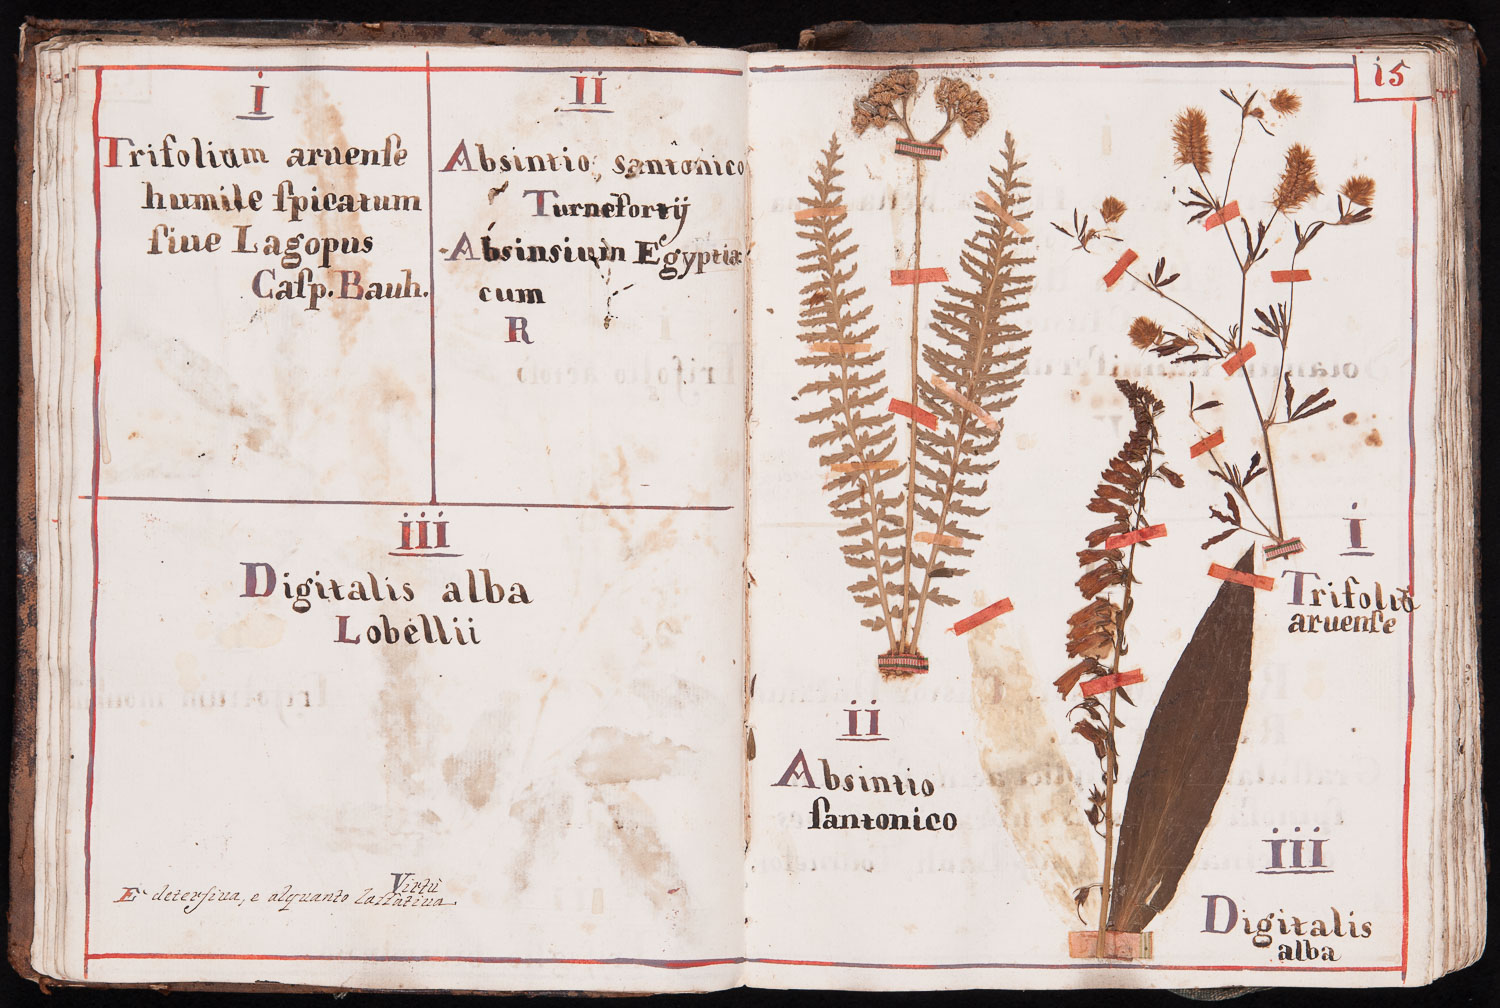 i
Trifolium aruenſe
humile ſpicatum
ſiue Lagopus
Caſp. Bauh.
ii
Absintio santonico
Turnefortij
Absinsium Egyptia
cum
R
iii
Digitalis alba
Lobellii
Virtù
E' deterſiua, e alquanto laſſatiua
15
i
Trifoliō
aruenſe
ii
Absintio
ſantonico
iii
Digitalis
alba